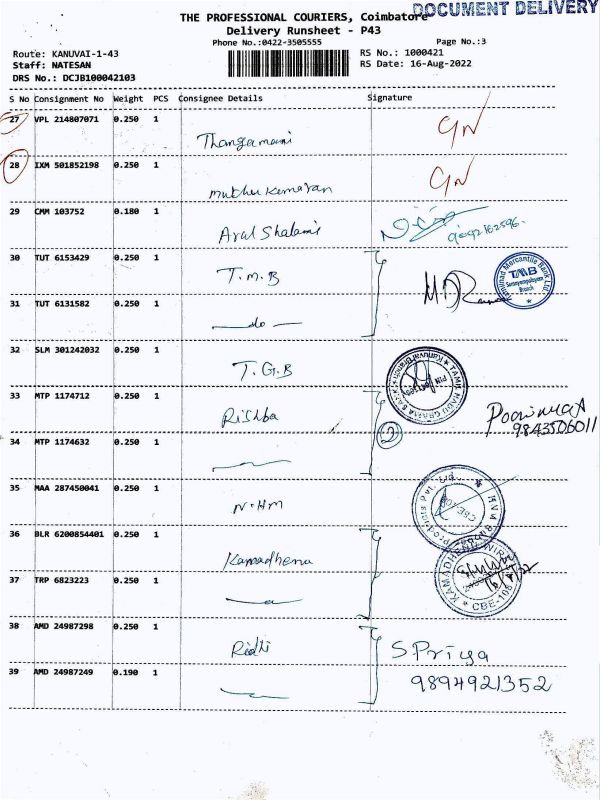 DOCUMENT DELIVERY
THE PROFESSIONAL COURIERS, Coimbatore
Delivery Runsheet - P43
Phone No.:0422-3505555
Page No.:3
Route: KANUVAI-1-43
RS No.: 1000421
Staff: NATESAN
RS Date: 16-Aug-2022
DRS No.: DCJB100042103
S No Consignment No Weight PCS Consignee Details Signature
27 VPL 214807071 0.250 1 Thangamani GN
28 IXM 501852198 0.250 1 Muthukumaran GN
29 CMM 103752 0.180 1 Arul Shalami
30 TUT 6153429 0.250 1 T.M.B
Tamilnad Mercantile Bank Ltd
TMB
Branch
31 TUT 6131582 0.250 1 — do —
32 SLM 301242032 0.250 1 T.G.B
TAMIL NADU GRAMA BANK
33 MTP 1174712 0.250 1 Rishba
9843506011
34 MTP 1174632 0.250 1 2
35 MAA 287450041 0.250 1 N.H.M
Products Pvt. Ltd.
36 BLR 6200854401 0.250 1 Kamadhenu
KAMADHENU
CBE-108
37 TRP 6823223 0.250 1
38 AMD 24987298 0.250 1 Ridhi S. Priya
9894921352
39 AMD 24987249 0.190 1